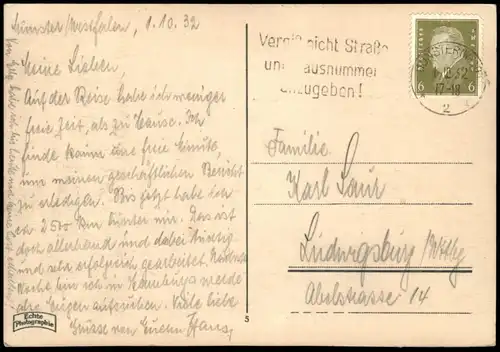 Münster/Westfalen, 1.10.32
Meine Lieben,
Auf der Reise habe ich weniger
freie Zeit, als zu Hause. Ich
finde kaum eine freie Minute,
um meinen geschäftlichen Bericht
zu erledigen. Bis jetzt habe ich
ca 2500 km hinter mir. Das ist
doch allerhand und dabei
und sehr erfolgreich gearbeitet. Nächste
Woche bin ich in Hamburg werde
die Augen aufreißen. Viele liebe
Grüsse von Eurem Hans,
Echte
Photographie
5
Vergiß nicht Straße
un ausnummer
nzugeben!
MÜNSTER
1.10.32
17-18
2
6 6
Familie
Karl Saur
Ludwigsburg/Wttbg
Abelstrasse 14